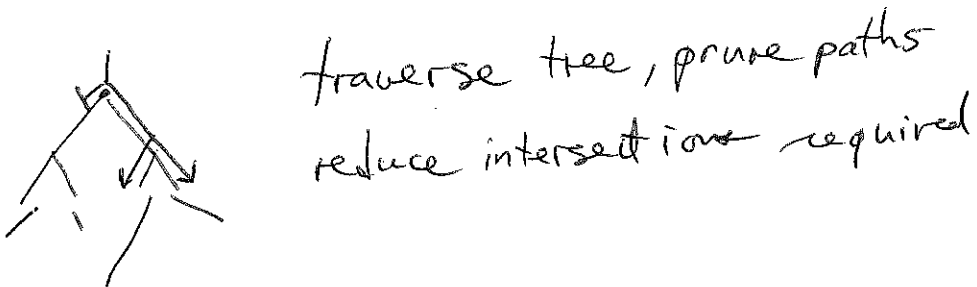 traverse tree, prune paths
reduce intersections required